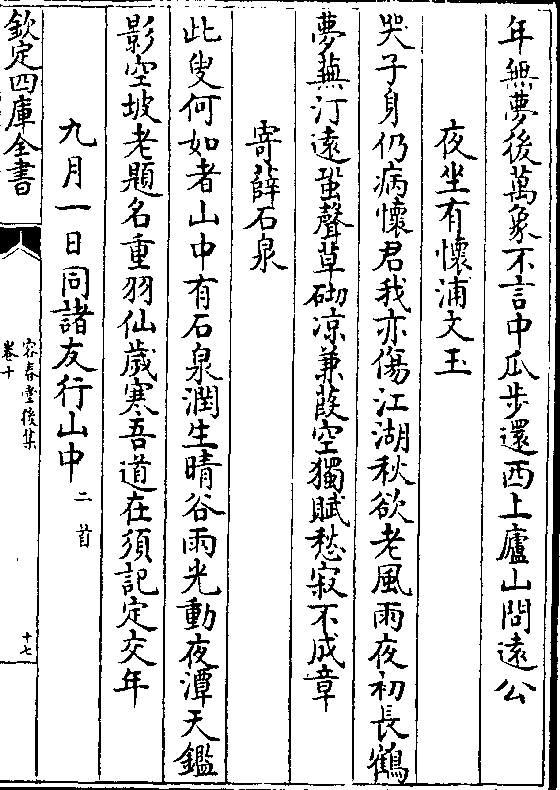 年無夢後萬象不言中瓜步還西上廬山問遠公
夜坐有懷浦文玉
哭子身仍病懷君我亦傷江湖秋欲老風雨夜初長鶴
夢蘓汀遠蛩聲草砌凉蒹葭空獨賦愁寂不成章
寄薛石泉
此叟何如者山中有石泉潤生晴谷雨光動夜潭天鑑
影空坡老題名重羽仙歲寒吾道在須記定交年
九月一日同諸友行山中二首
欽定四庫全書
容春堂後集
卷十
十七